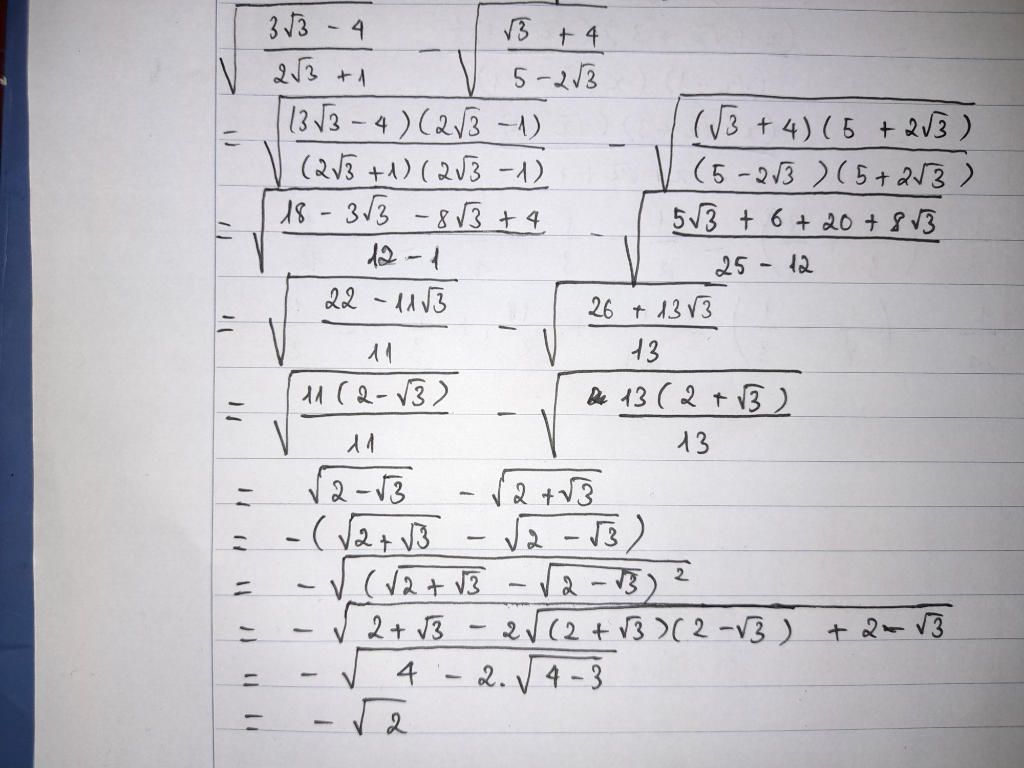 √((3√3 - 4)/(2√3 + 1)) - √((√3 + 4)/(5 - 2√3))
= √(((3√3 - 4)(2√3 - 1))/((2√3 + 1)(2√3 - 1))) - √(((√3 + 4)(5 + 2√3))/((5 - 2√3)(5 + 2√3)))
= √((18 - 3√3 - 8√3 + 4)/(12 - 1)) - √((5√3 + 6 + 20 + 8√3)/(25 - 12))
= √((22 - 11√3)/11) - √((26 + 13√3)/13)
= √((11(2 - √3))/11) - √((13(2 + √3))/13)
= √(2 - √3) - √(2 + √3)
= -(√(2 + √3) - √(2 - √3))
= -√((√(2 + √3) - √(2 - √3))²)
= -√(2 + √3 - 2√((2 + √3)(2 - √3)) + 2 - √3)
= -√(4 - 2.√(4 - 3))
= -√2